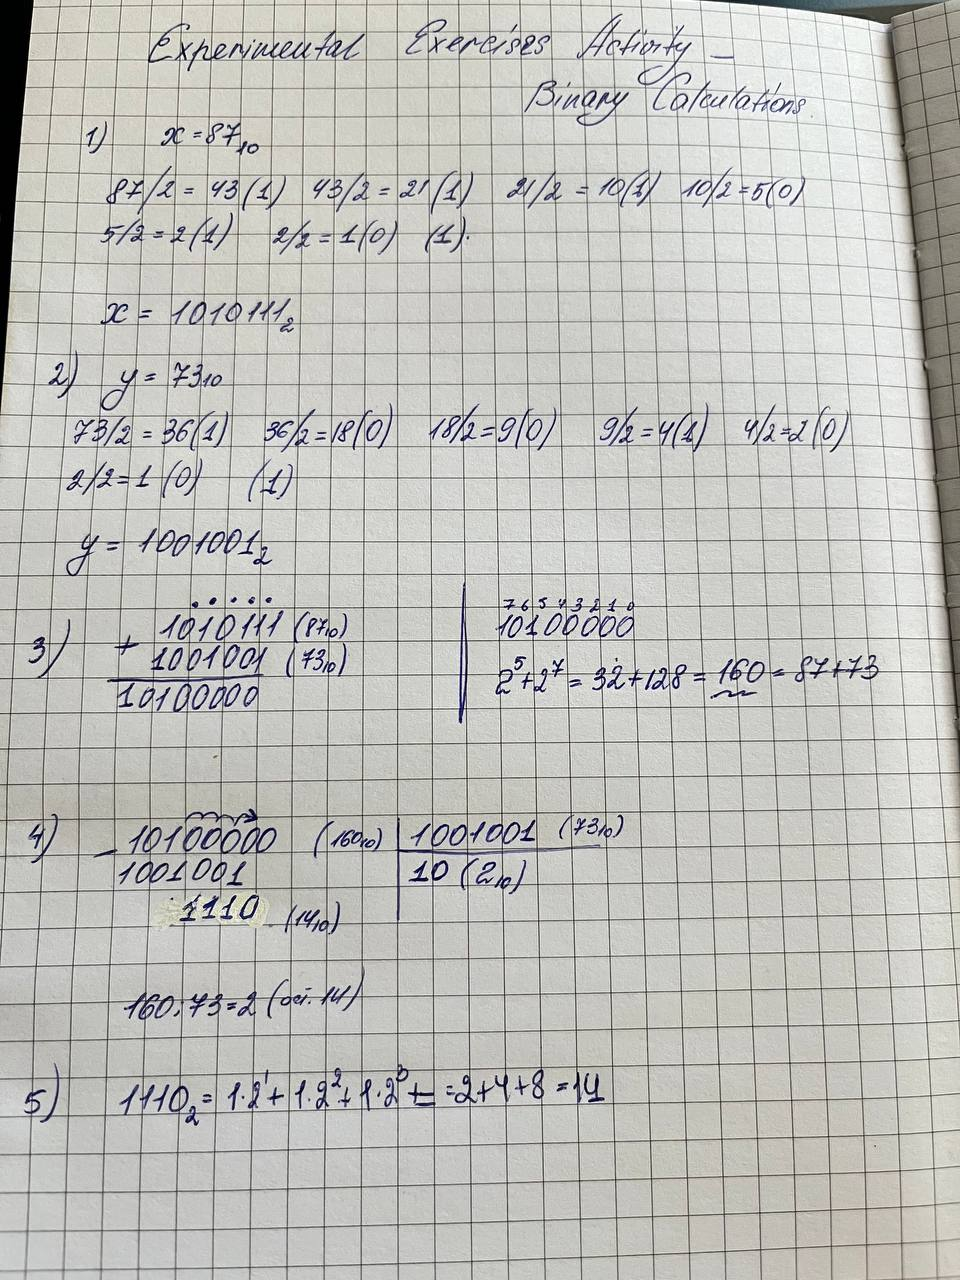 Experimental Exercises Activity –
Binary Calculations.
1) x = 87₁₀
87/2 = 43(1) 43/2 = 21(1) 21/2 = 10(1) 10/2 = 5(0)
5/2 = 2(1) 2/2 = 1(0) (1).
x = 1010111₂
2) y = 73₁₀
73/2 = 36(1) 36/2 = 18(0) 18/2 = 9(0) 9/2 = 4(1) 4/2 = 2(0)
2/2 = 1 (0) (1)
y = 1001001₂
3) + 1010111 (87₁₀)
1001001 (73₁₀)
10100000
7 6 5 4 3 2 1 0
10100000
2⁵ + 2⁷ = 32 + 128 = 160 = 87+73
4) – 10100000 (160₁₀) | 1001001 (73₁₀)
1001001 | 10 (2₁₀)
1110 (14₁₀)
160:73 = 2 (ост. 14)
5) 1110₂ = 1·2¹ + 1·2² + 1·2³ + = = 2+4+8 = 14